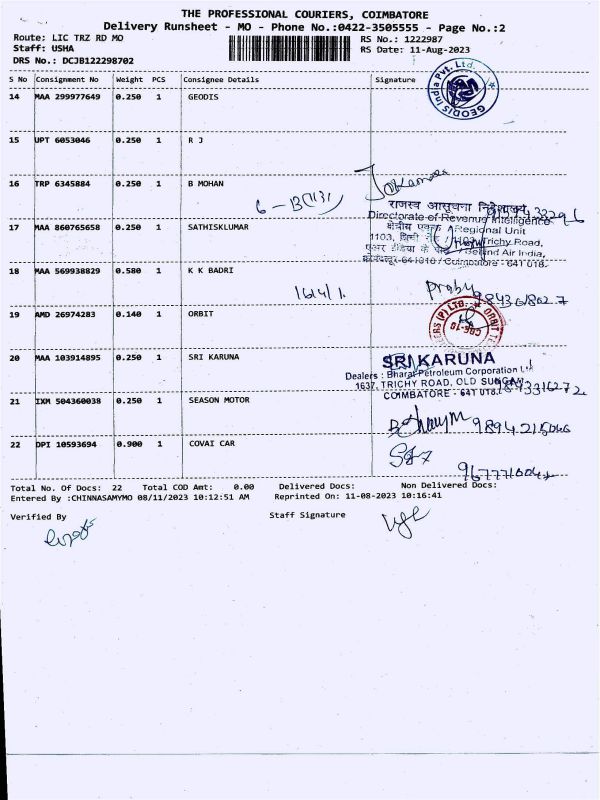 THE PROFESSIONAL COURIERS, COIMBATORE
Delivery Runsheet - MO - Phone No.:0422-3505555 - Page No.:2
Route: LIC TRZ RD MO
RS No.: 1222987
Staff: USHA
RS Date: 11-Aug-2023
DRS No.: DCJB122298702
S No Consignment No Weight PCS Consignee Details Signature
14 MAA 299977649 0.250 1 GEODIS
GEODIS India Pvt. Ltd.
15 UPT 6053046 0.250 1 R J
16 TRP 6345884 0.250 1 B MOHAN
राजस्व आसूचना निदेशालय
Directorate of Revenue Intelligence
17 MAA 860765658 0.250 1 SATHISKLUMAR
Regional Unit
1103, Trichy Road,
Behind Air India,
Coimbatore - 641 018.
18 MAA 569938829 0.580 1 K K BADRI
1614/1
19 AMD 26974283 0.140 1 ORBIT
20 MAA 103914895 0.250 1 SRI KARUNA
SRI KARUNA
Dealers : Bharat Petroleum Corporation Ltd
1637, TRICHY ROAD, OLD SUNGAM,
COIMBATORE - 641 018.
21 IXM 504360038 0.250 1 SEASON MOTOR
9894215046
22 DPI 10593694 0.900 1 COVAI CAR
Total No. Of Docs: 22 Total COD Amt: 0.00 Delivered Docs: Non Delivered Docs:
Entered By :CHINNASAMYMO 08/11/2023 10:12:51 AM Reprinted On: 11-08-2023 10:16:41
Verified By
Staff Signature